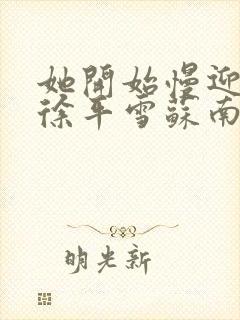 她開始慢迎
徐平雪蘇南
明光新